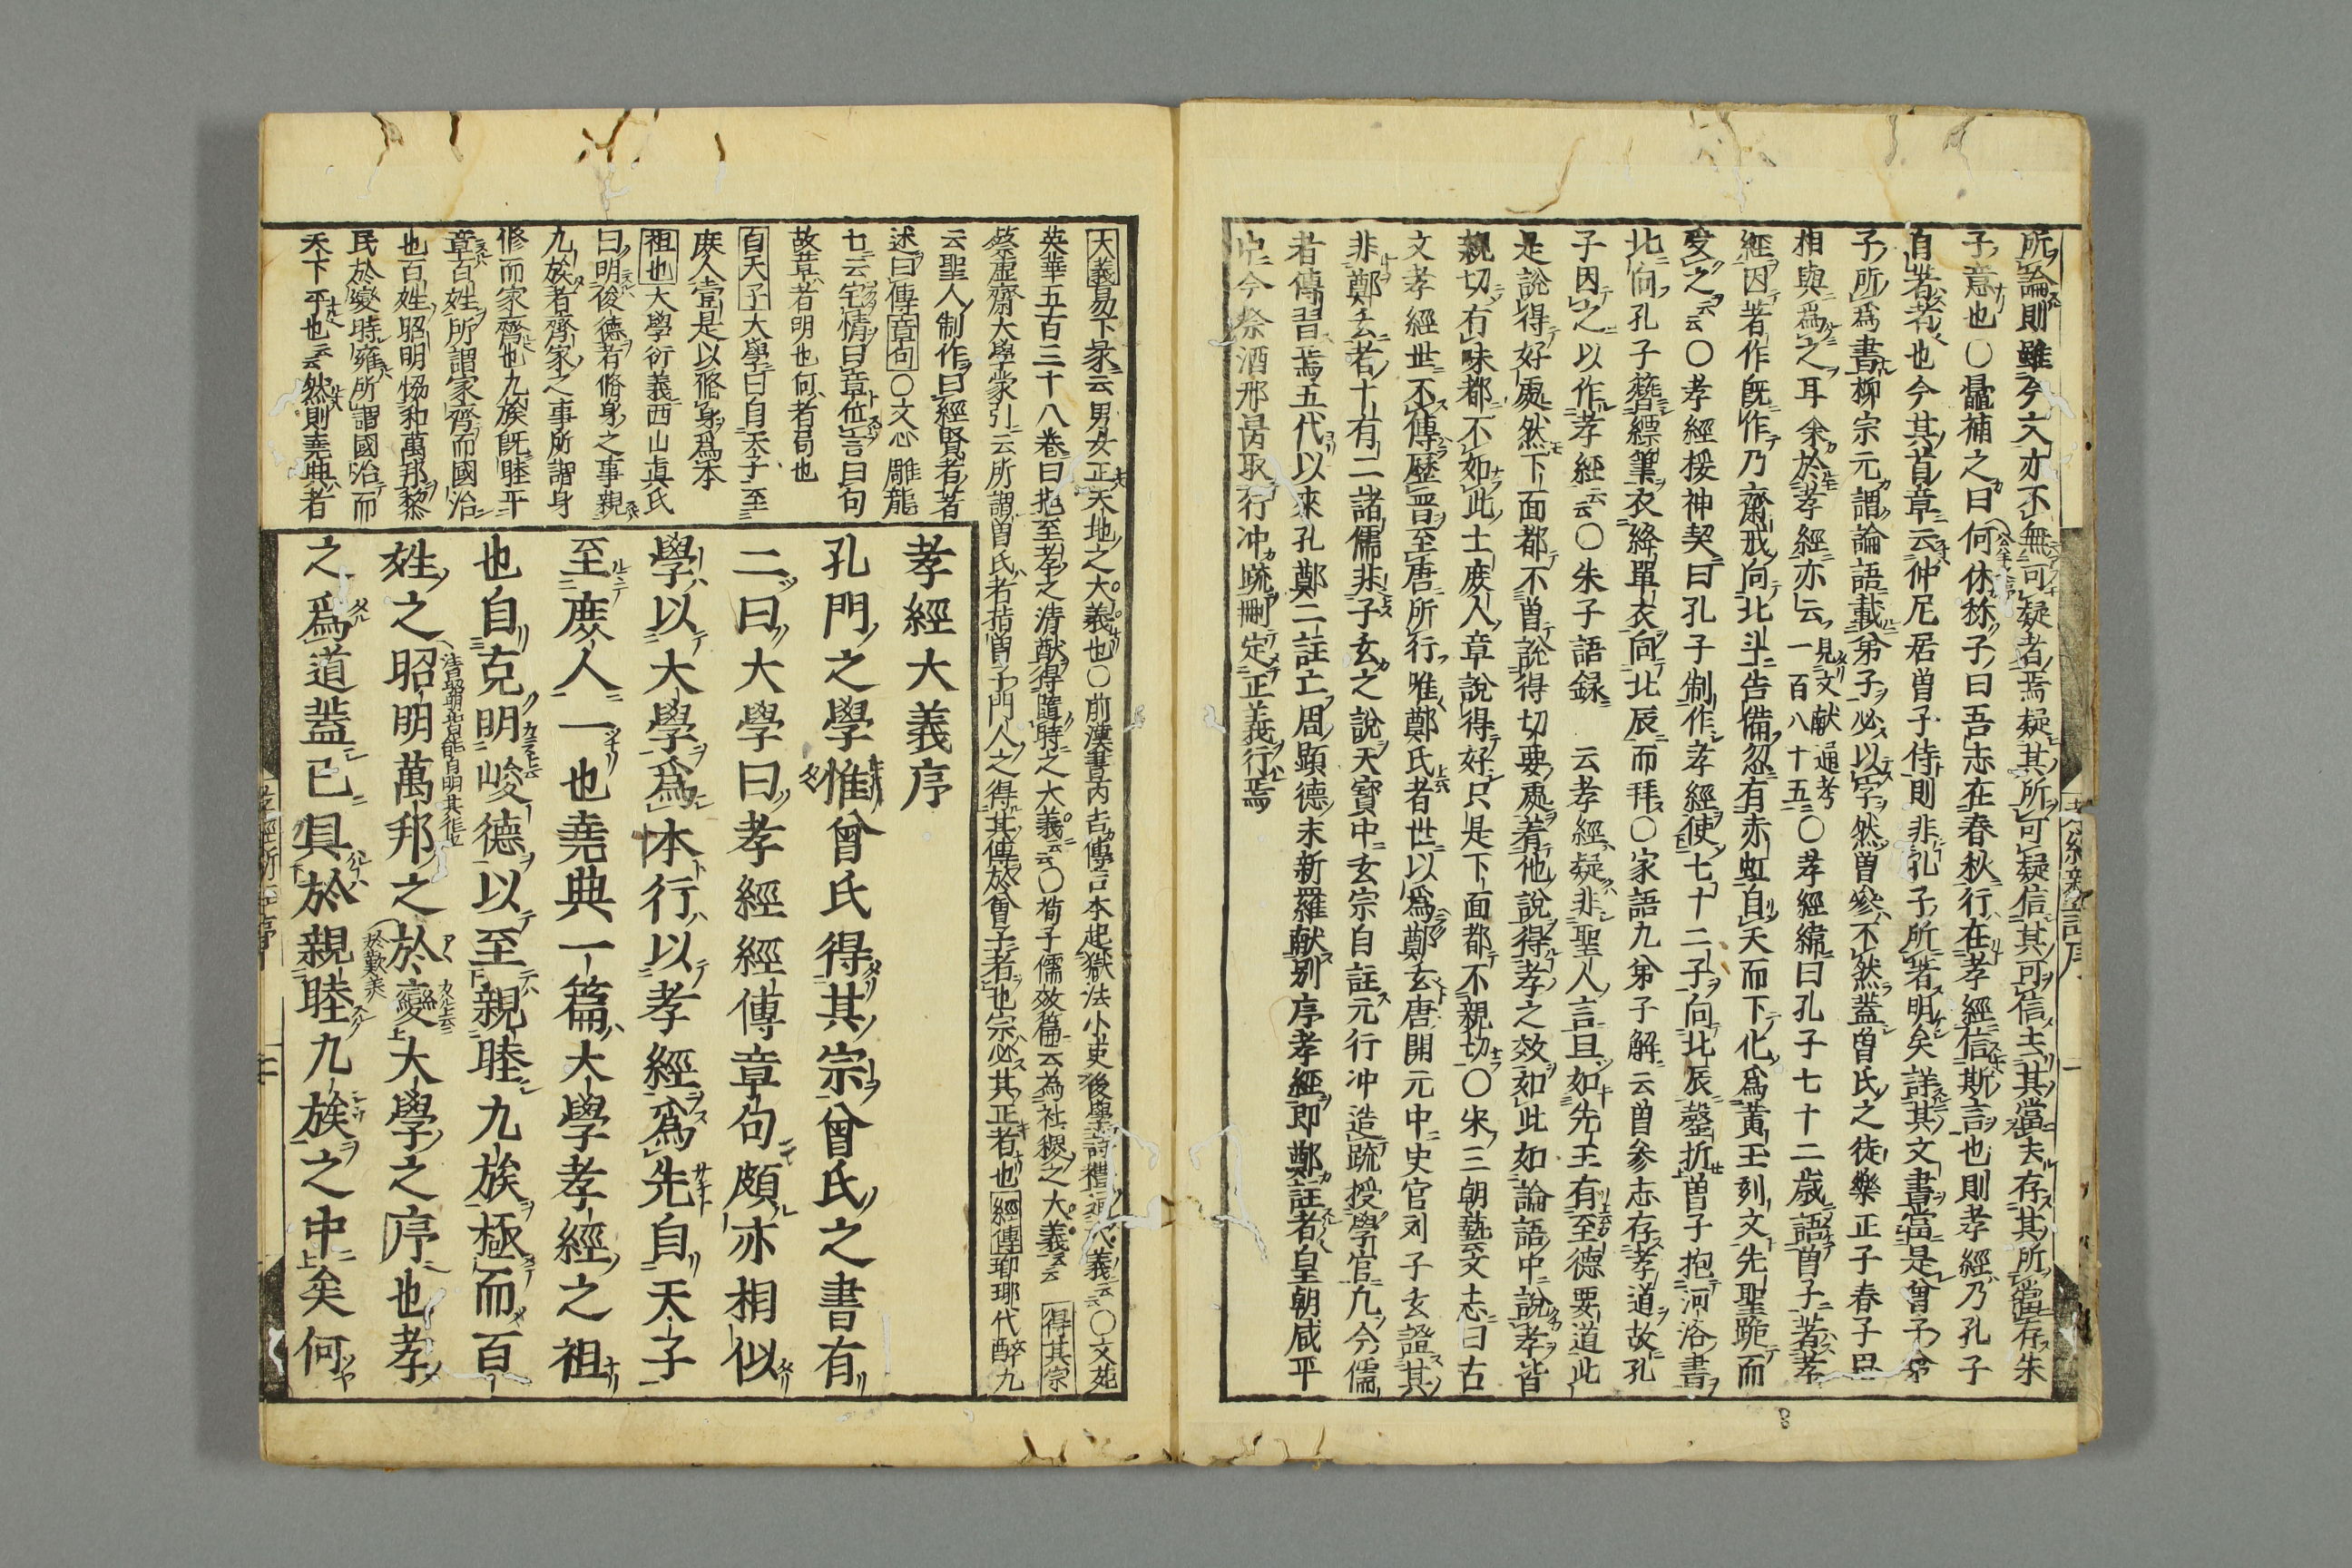 所論則雖今文亦不無可疑者焉疑其所可疑信其可信去其當去存其所當存朱
子意也○鼂補之曰何休称子曰吾志在春秋行在孝經信斯言也則孝經乃孔子
自著者也今其首章云仲尼居曽子侍則非孔子所著明矣詳其文書當是曾子弟
子所爲書柳宗元謂論語載弟子必以字然曽參不然蓋曽氏之徒樂正子春子思
相與爲之耳余於孝經亦云見文献通考一百八十五○孝經緯曰孔子七十二歳語曽子著孝
經因著作既作乃齋戒向北斗告備忽有赤虹自天而下化爲黃玉刻文先聖跪而
受之云云○孝經援神契曰孔子制作孝經使七十二子向北辰磬折曽子抱河洛書
北向孔子簪縹筆衣絳單衣向北辰而拜○家語九弟子解云曽参志存孝道故孔
子因之以作孝經云云○朱子語録 云孝經疑非聖人言且如先王有至德要道此
是說得好處然下面都不曽說得切要處着他說得孝之效如此如論語中說孝皆
親切有味都不如此士庶人章說得好只是下面都不親切○宋三朝藝文志曰古
文孝經世不傳歷晋至唐所行唯鄭氏者世以爲鄭玄唐開元中史官刘子玄證其
非鄭玄者十有二諸儒非子玄之說天寳中玄宗自註元行冲造疏授學官凢今儒
者傳習焉五代以來孔鄭二註亡周顯德末新羅献別序孝經即鄭註者皇朝咸平
中今祭酒邢昺取行冲疏刪定正義行焉
大義易下彖云男女正天地之大義也○前漢書丙吉傳吉本起獄法小吏後學詩禮通大義云云○文苑
英華五百三十八巻曰抱至孝之清猷得隨時之大義云云○荀子儒效篇云為社稷之大義云云 得其宗
蔡虚齋大學蒙引云所謂曽氏者指曽子門人之得其傳於曾子者也宗必其正者也 經傳瑯琊代醉九
云聖人制作曰經賢者著
述曰傳 章句○文心雕龍
七云宅情曰章位言曰句
故章者明也句者局也
自天子大學曰自天子至
庶人壹是以脩身爲本
祖也大學衍義西山眞氏
曰明俊德者脩身之事親
九族者齊家之事所謂身
修而家齊也九族既睦平
章百姓所謂家齊而國治
也百姓昭明恊和萬邦黎
民於變時雍所謂國治而
天下平也云云然則堯典者
孝經大義序
孔門之學惟曾氏得其宗曾氏之書有
二曰大學曰孝經經傳章句頗亦相似
學以大學爲本行以孝經爲先自天子
至庶人一也堯典一篇大學孝經之祖
也自克明峻德以至親睦九族極而百
姓之昭明萬邦之於變大學之序也孝
之爲道蓋已具於親睦九族之中矣何